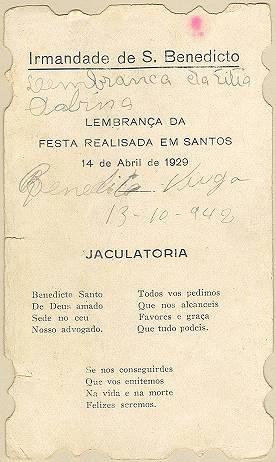 Irmandade de S. Benedicto
Lembranca da Tilia
LEMBRANÇA DA
FESTA REALISADA EM SANTOS
14 de Abril de 1929
Benedita
13-10-942
JACULATORIA
Benedicto Santo
De Deus amado
Sede no ceu
Nosso advogado.
Todos vos pedimos
Que nos alcanceis
Favores e graça
Que tudo podeis.
Se nos conseguirdes
Que vos emitemos
Na vida e na morte
Felizes seremos.